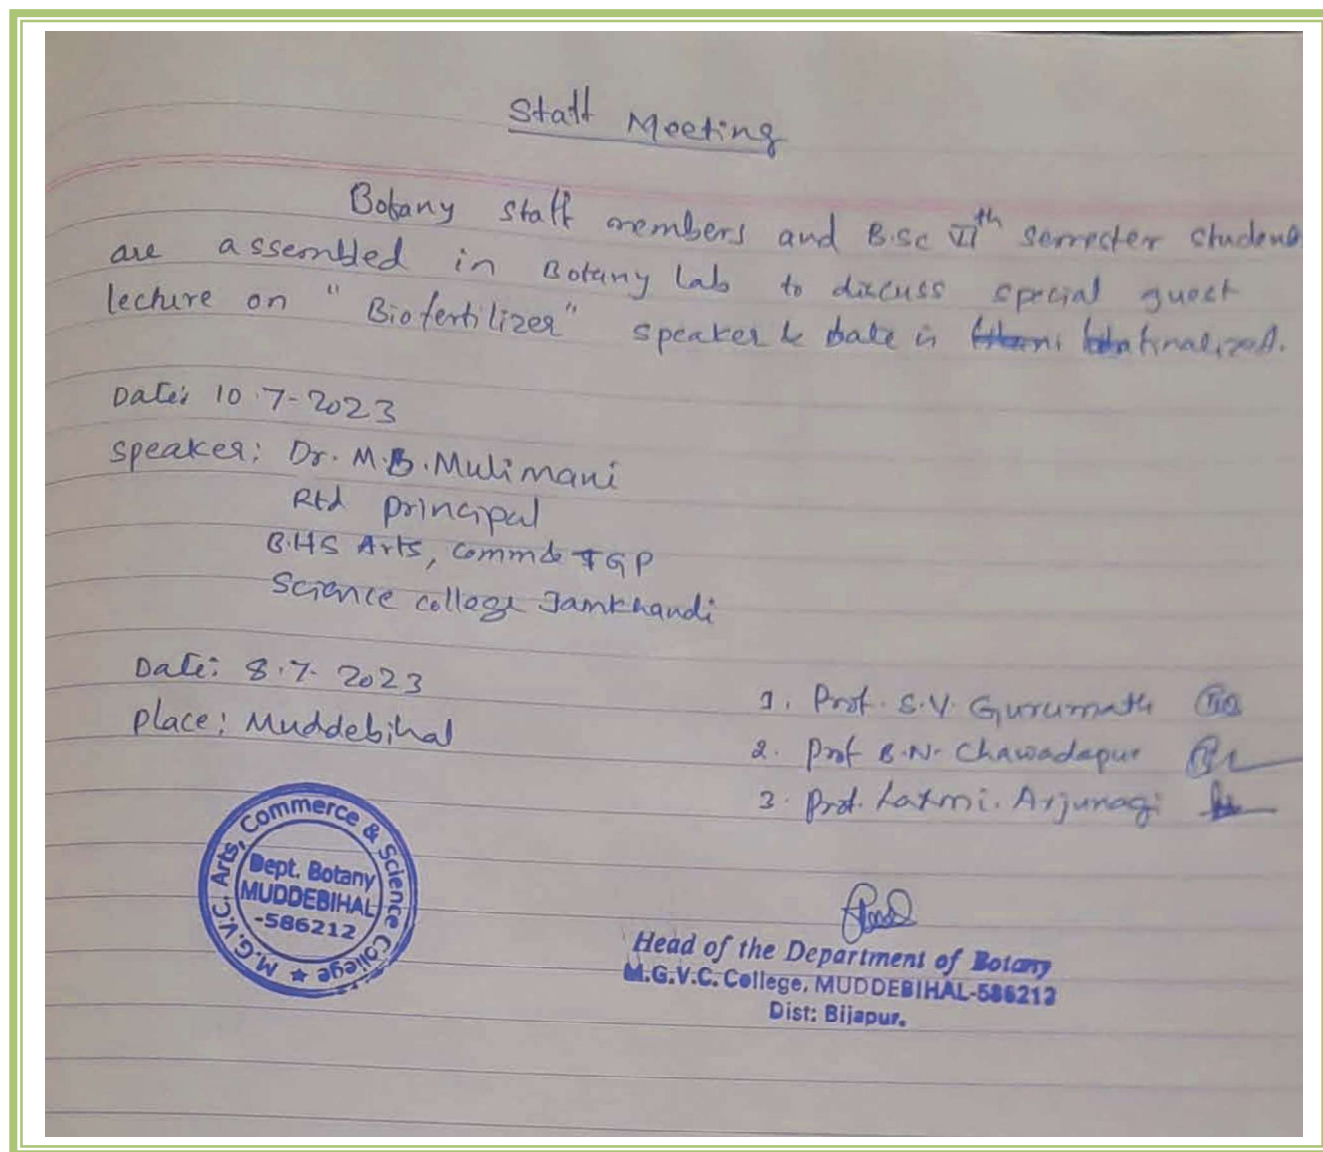 Staff Meeting
Botany staff members and B.Sc VIth semester students
are assembled in Botany Lab to discuss special guest
lecture on "Biofertilizer" speaker & date is finalized.
Date: 10.7-2023
Speaker: Dr. M.B. Mulimani
Rtd principal
B.HS Arts, Commde & GP
Science college Jamkhandi
Date: 8.7-2023
Place: Muddebihal
1. Prof. S.V. Gurumath
2. Prof B.N. Chawadapur
3. Prof. Laxmi. Arjunagi
M.G.V.C. Arts, Commerce & Science College ★
Dept. Botany
MUDDEBIHAL
-586212
Head of the Department of Botany
M.G.V.C. College, MUDDEBIHAL-586212
Dist: Bijapur.